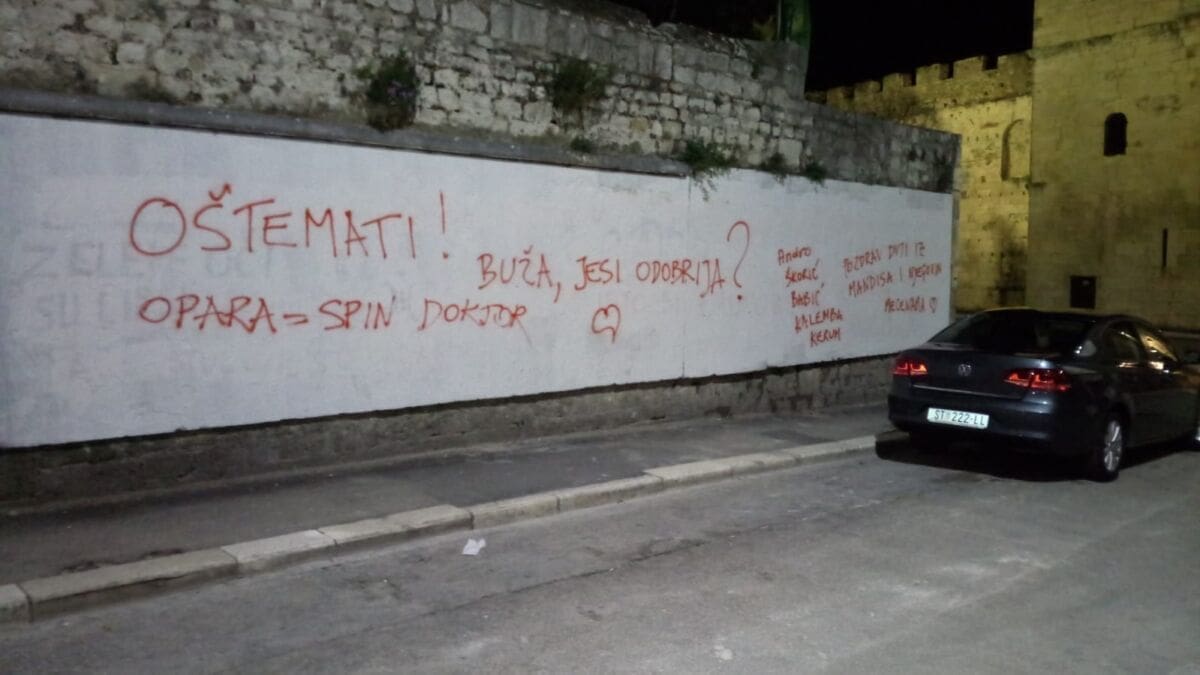 OŠTEMATI!
OPARA = SPIN DOKTOR
BUŽA, JESI ODOBRIJA?
Andro
ŠKORIĆ
BABIĆ
KALEMBA
KERUM
POZDRAV DUTI IZ
MANDISA I NJEGOVIH
MECENARA
ST 222-LL